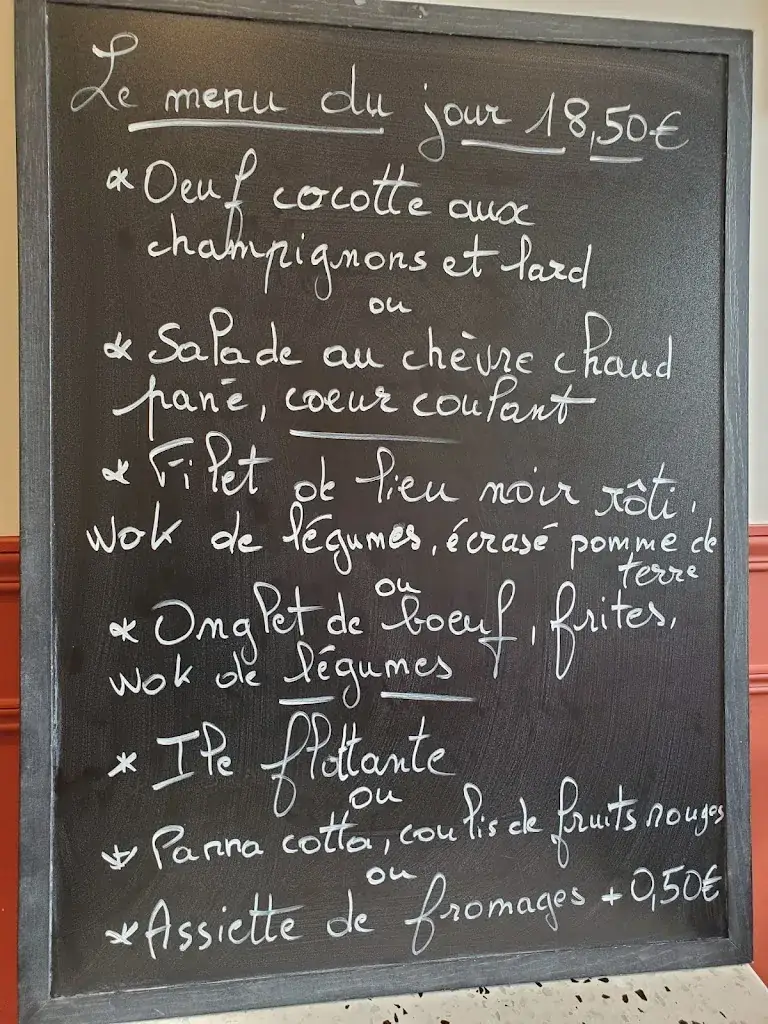 Le menu du jour 18,50€
* Oeuf cocotte aux
champignons et lard
ou
* Salade au chèvre chaud
pané, coeur coulant
* Filet de lieu noir rôti,
wok de légumes, écrasé pomme de
terre
ou
* Onglet de boeuf, frites,
wok de légumes
* Ile flottante
ou
* Panna cotta, coulis de fruits rouges
ou
* Assiette de fromages + 0,50€